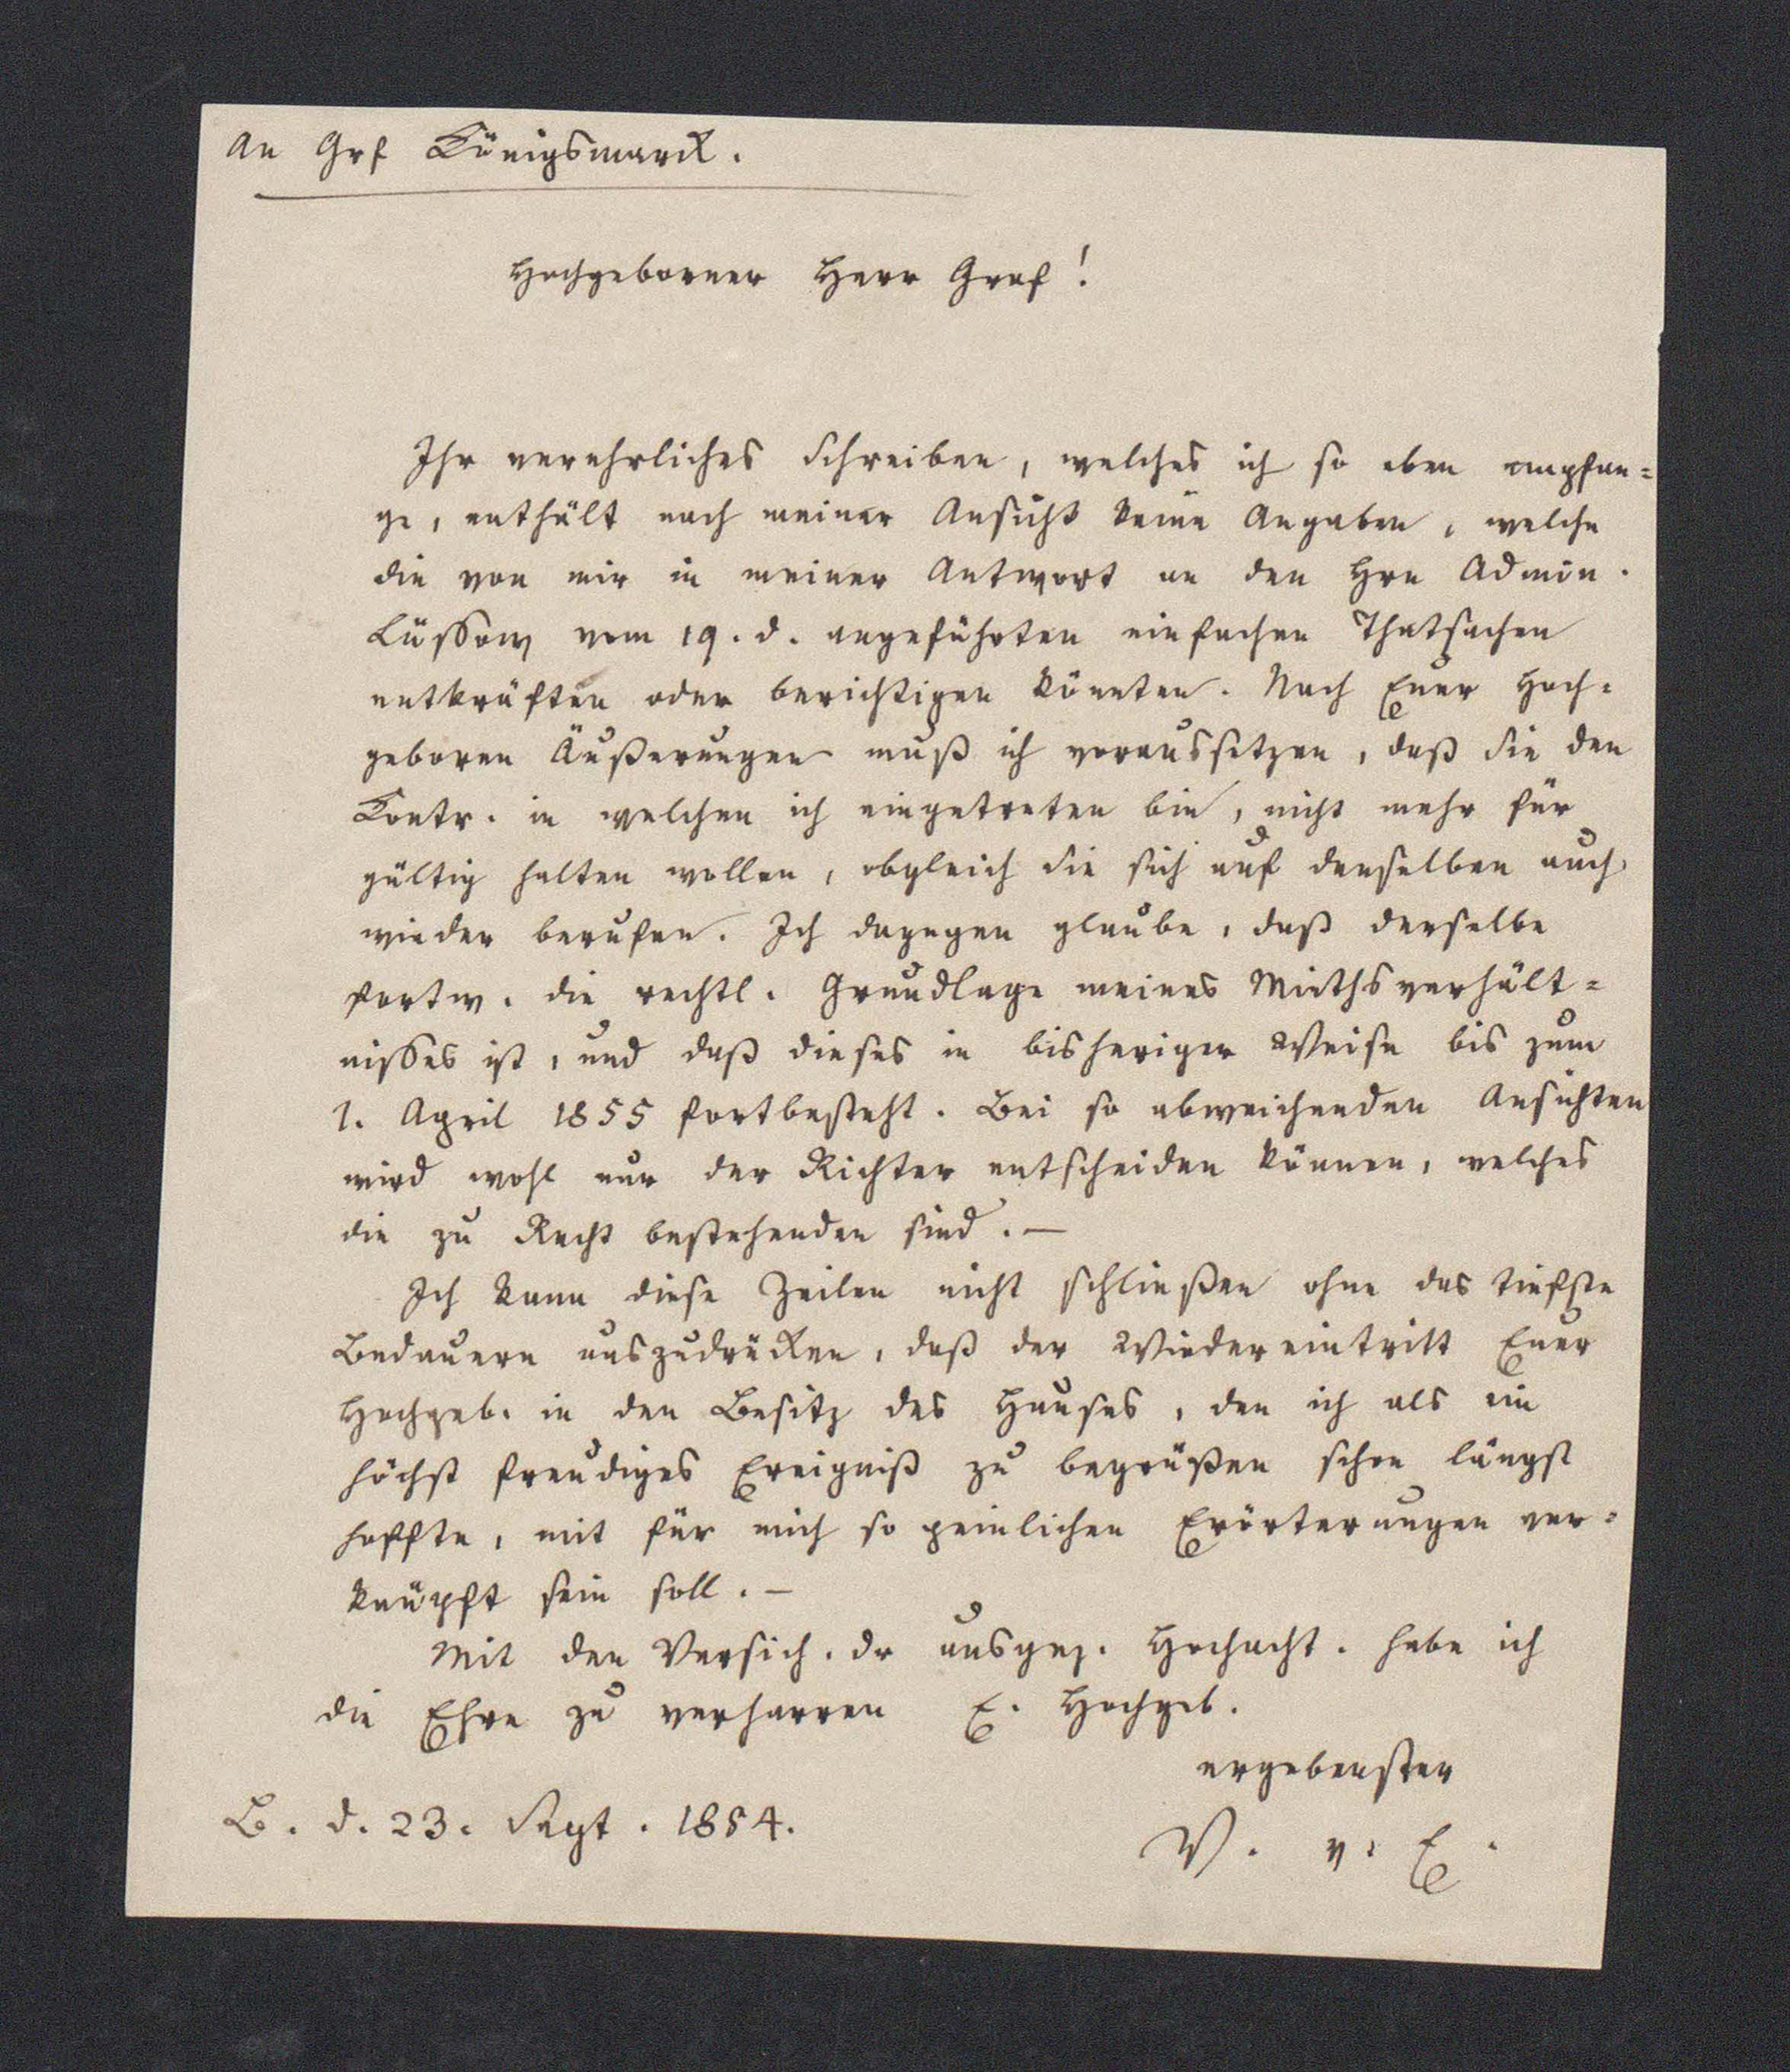 An Grf Königsmarck.
Hochgeborner Herr Graf!
Ihr verehrliches Schreiben, welches ich so eben empfan=
ge, enthält nach meiner Ansicht keine Angaben, welche
die von mir in meiner Antwort an den Hrn Admin.
Lüssow vom 19. d. angeführten einfachen Thatsachen
entkräften oder berichtigen könnten. Nach Euer Hoch=
geboren Äußerungen muß ich voraussetzen, daß Sie den
Contr. in welchen ich eingetreten bin, nicht mehr für
gültig halten wollen, obgleich Sie sich auf denselben auch
wieder berufen. Ich dagegen glaube, daß derselbe
fortw. die rechtl. Grundlage meines Miethsverhält=
nisses ist, und daß dieses in bisheriger Weise bis zum
1. April 1855 fortbesteht. Bei so abweichenden Ansichten
wird wohl nur der Richter entscheiden können, welches
die zu Recht bestehenden sind. —
Ich kann diese Zeilen nicht schließen ohne das tiefste
Bedauern auszudrücken, daß der Wiedereintritt Euer
Hochgeb. in den Besitz des Hauses, den ich als ein
höchst freudiges Ereigniß zu begrüßen schon längst
hoffte, mit für mich so peinlichen Erörterungen ver=
knüpft sein soll. —
Mit den Versich. dr ausgez. Hochacht. habe ich
die Ehre zu verharren E. Hochgeb.
ergebenster
B. d. 23. Sept. 1854.
V. v. E.